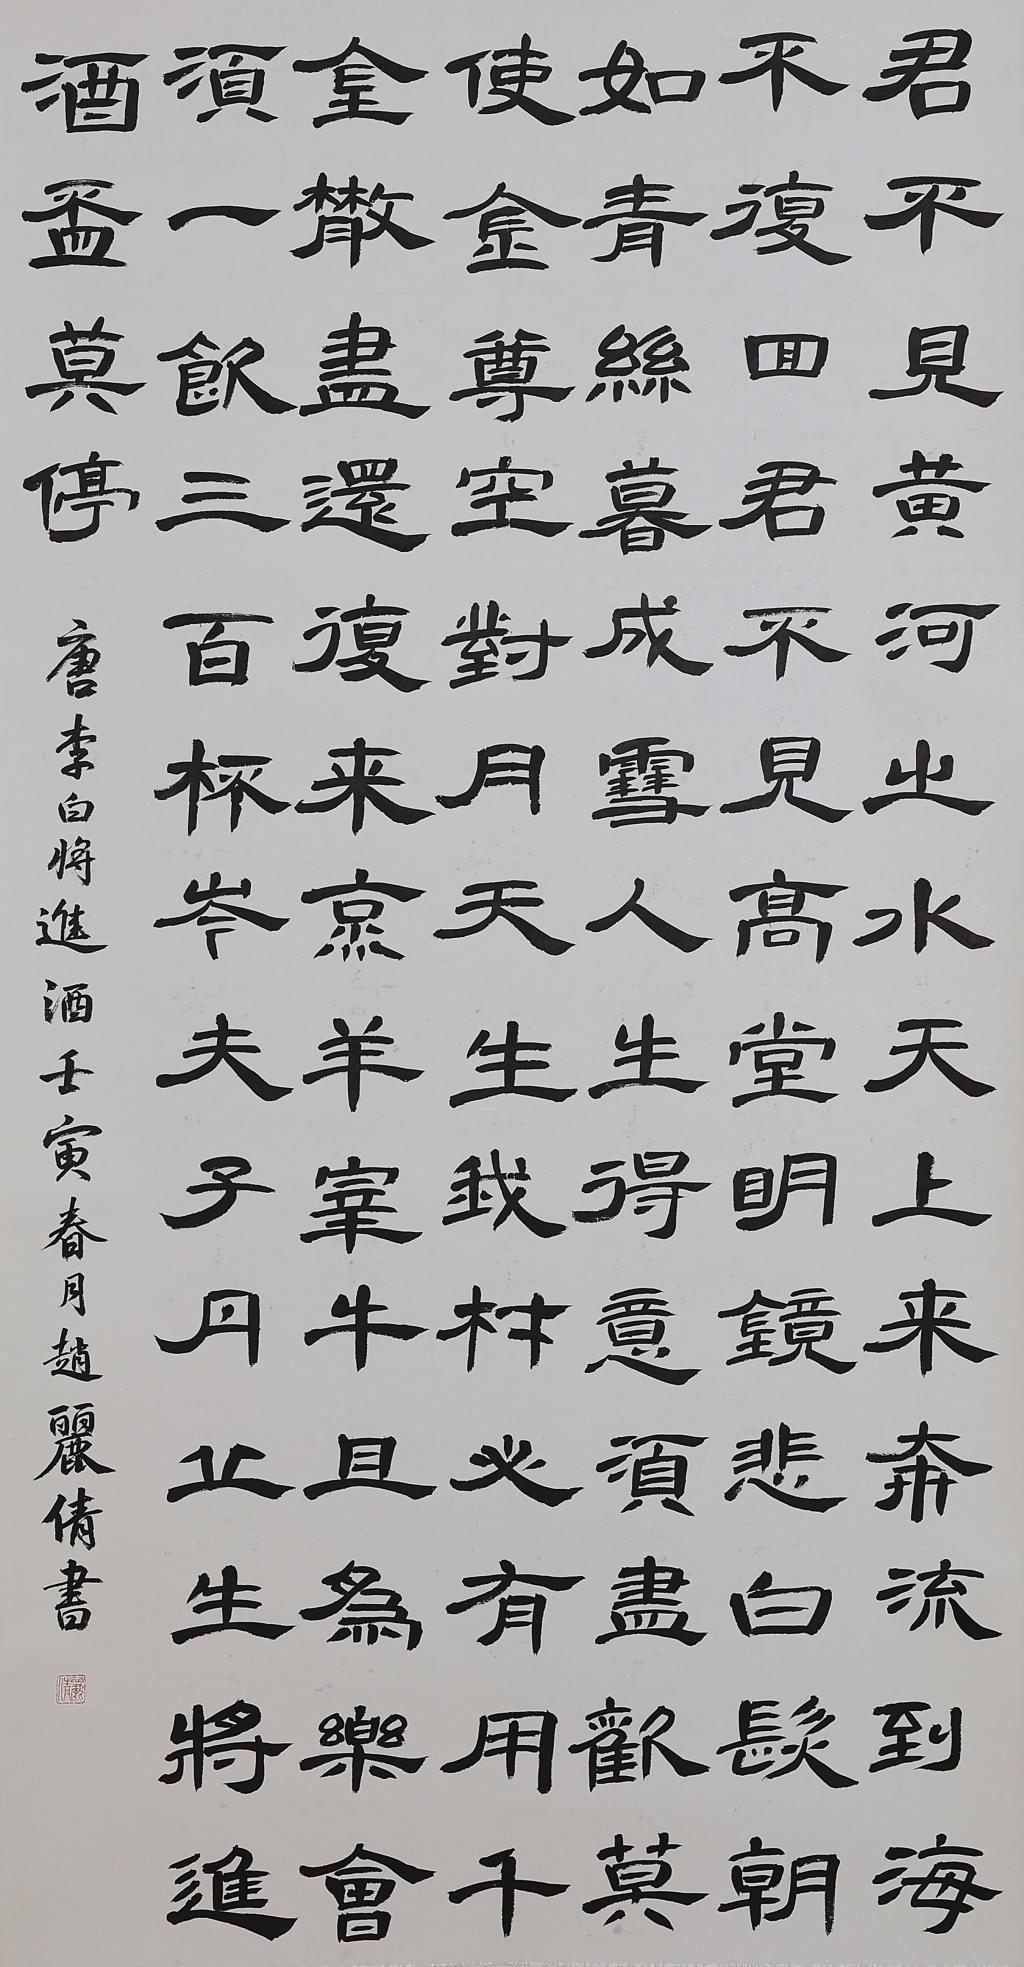 君不見黄河之水天上来奔流到海
不復回君不見高堂明鏡悲白髮朝
如青絲暮成雪人生得意須盡歡莫
使金尊空對月天生我材必有用千
金散盡還復来烹羊宰牛且為樂會
須一飲三百杯岑夫子丹丘生將進
酒盃莫停
唐李白將進酒壬寅春月趙麗倩書
麗倩